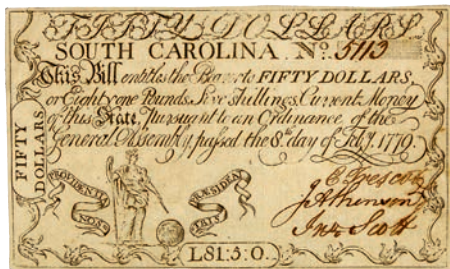 FIFTY DOLLARS
SOUTH CAROLINA. No. 5113
This Bill entitles the Bearer to FIFTY DOLLARS,
or Eighty one Pounds Five Shillings Current Money
of this State, Pursuant to an Ordinance of the
General Assembly, passed the 8th. day of Feby. 1779.
FIFTY
DOLLARS
PROVIDENTIA
NOSTRIS
PRÆSIDEAT
E. Prescott
J Atkinson
Jno. Scott
L81:5:0.